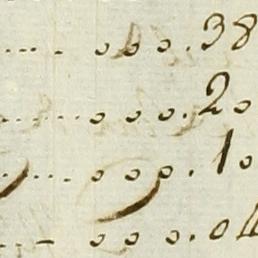 ..... 000.38
...... 000.20
..... 000.10
... – 000.04